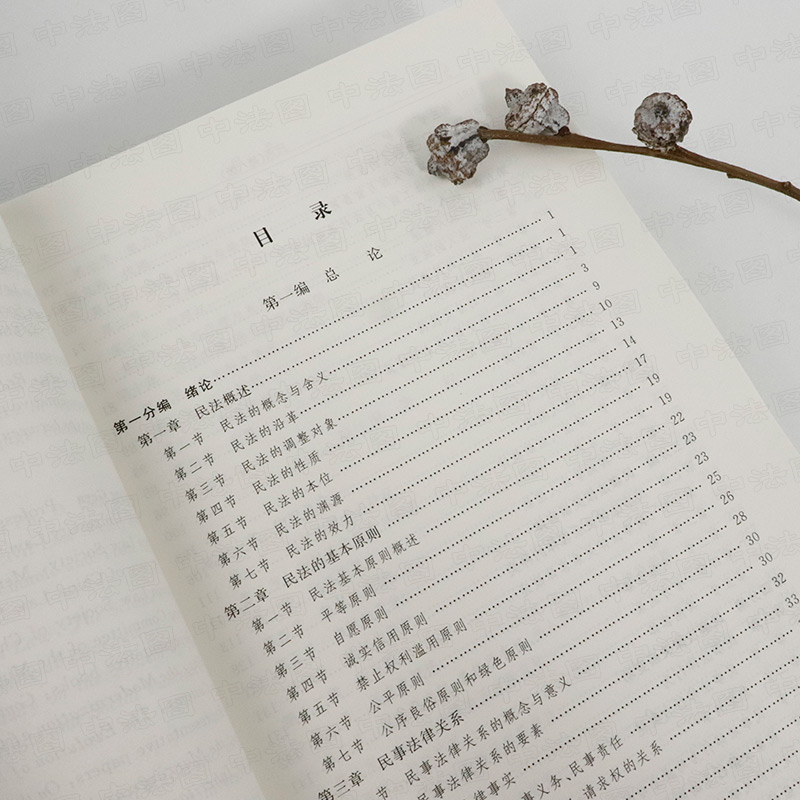 目 录
第一编 总 论
第一分编 绪论……1
第一章 民法概述……1
第一节 民法的概念与含义……1
第二节 民法的沿革……3
第三节 民法的调整对象……9
第四节 民法的性质……10
第五节 民法的本位……13
第六节 民法的渊源……14
第七节 民法的效力……17
第二章 民法的基本原则……19
第一节 民法基本原则概述……19
第二节 平等原则……22
第三节 自愿原则……23
第四节 诚实信用原则……23
第五节 禁止权利滥用原则……25
第六节 公平原则……26
第七节 公序良俗原则和绿色原则……28
第三章 民事法律关系……30
节 民事法律关系的概念与意义……30
民事法律关系的要素……32
律事实……33
事义务、民事责任
请求权的关系
中法图